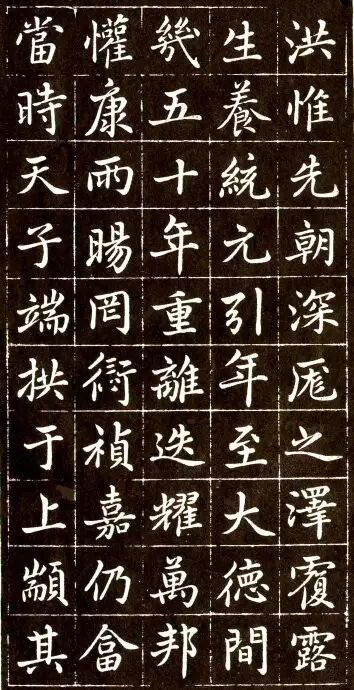 洪惟先朝深厖之澤覆露
生養統元引年至大德間
幾五十年重離迭耀萬邦
懽康雨暘罔愆禎嘉仍畣
當時天子端拱于上顒其